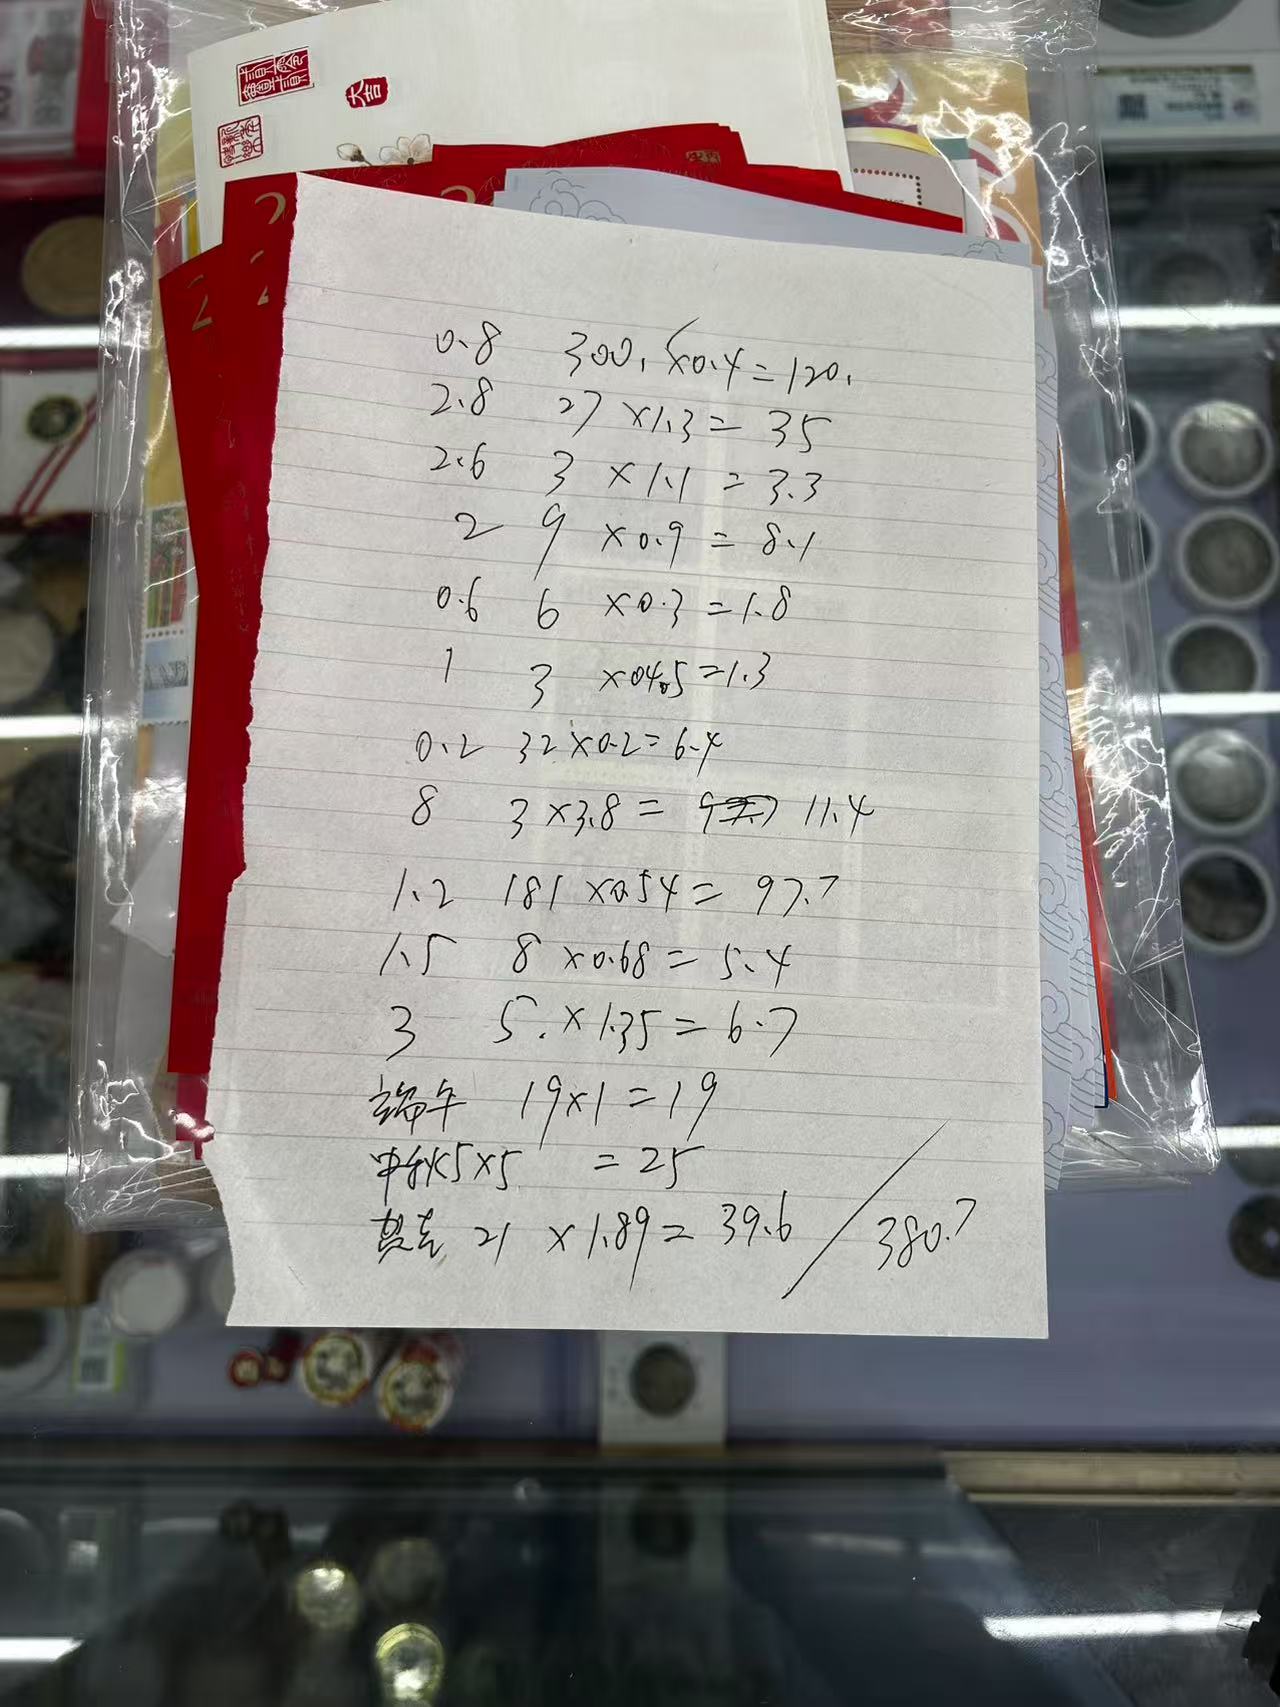 大吉
2
2
2
0.8 300. ×0.4=120.
2.8 27 ×1.3= 35
2.6 3 ×1.1 = 3.3
2 9 ×0.9 = 8.1
0.6 6 ×0.3=1.8
1 3 ×0.45=1.3
0.2 32×0.2=6.4
8 3×3.8= 11.4
1.2 181×0.54= 97.7
1.5 8×0.68= 5.4
3 5.×1.35=6.7
端午 19×1=19
中秋5×5 =25
贺卡 21 ×1.89= 39.6 / 380.7